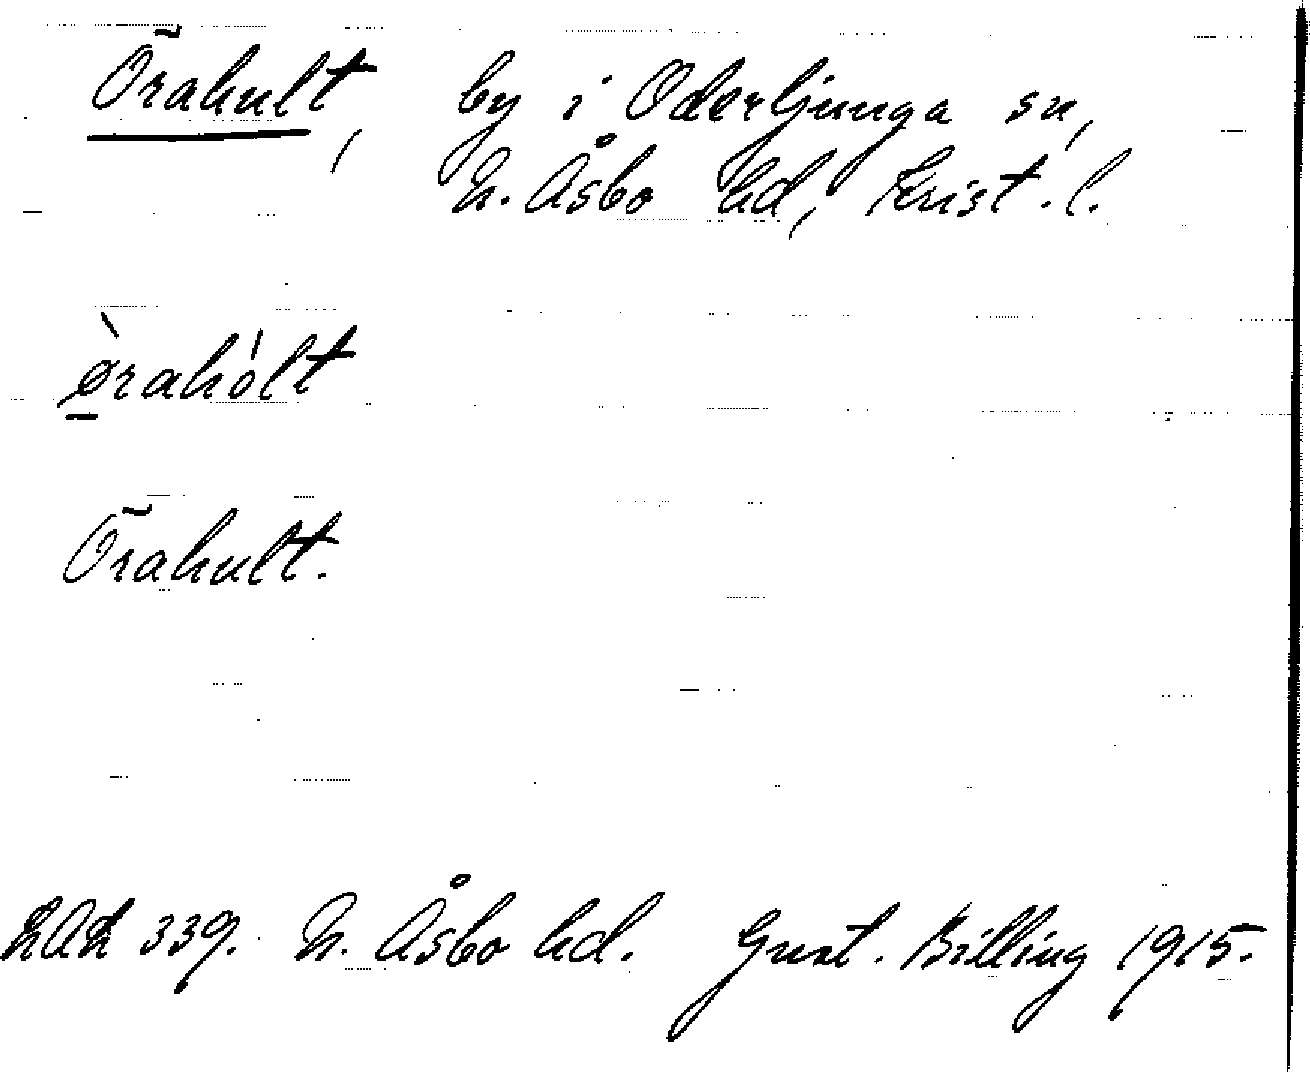 Örahult, by i Oderljunga sn,
N. Åsbo hd, Krist. l.
ø̀rahólt
Örahult.
LAL 339. N. Åsbo hd. Gust. Billing 1915.